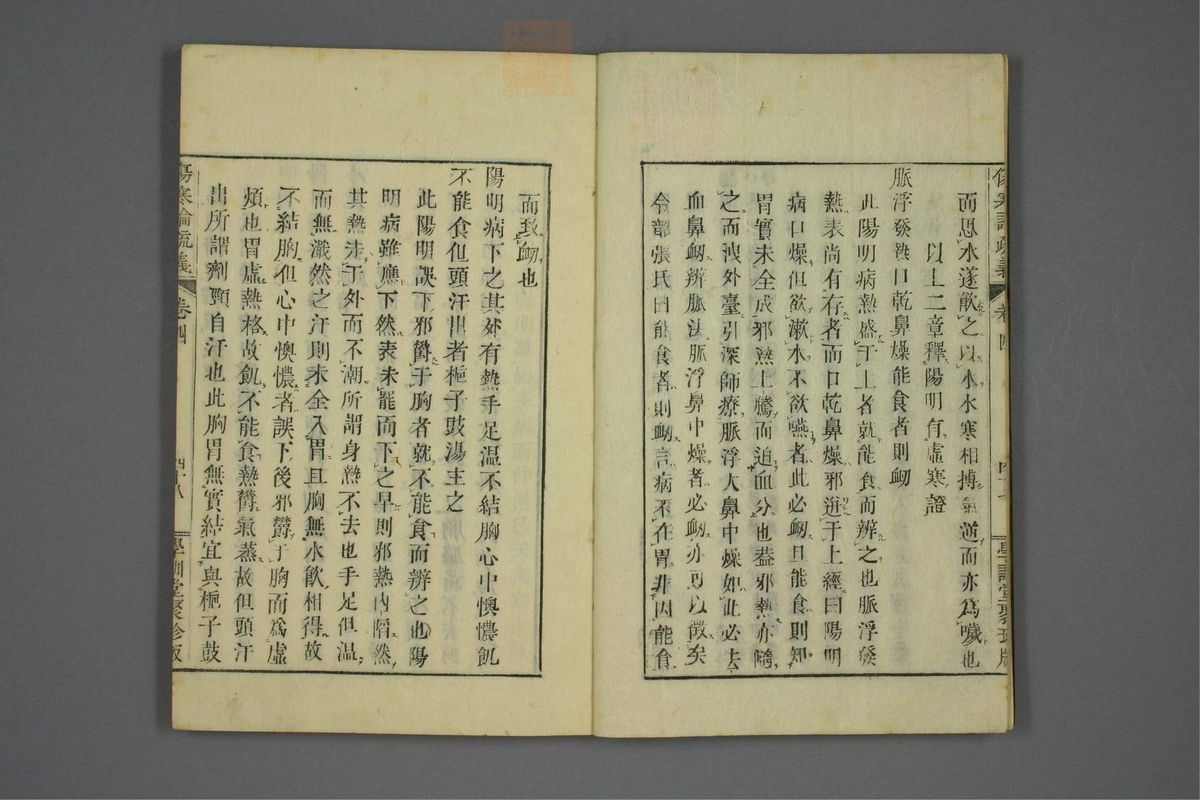 傷寒論疏義 卷四 四十七 學訓堂聚珍版
而思水遂飮之以水水寒相搏氣逆而亦爲噦也
以上二章釋陽明有虛寒證
脈浮發熱口乾鼻燥能食者則衂
此陽明病熱盛于上者就能食而辨之也脈浮發
熱表尚有存者而口乾鼻燥邪迸于上經曰陽明
病口燥但欲漱水不欲嚥者此必衂且能食則知
胃實未全成邪熱上騰而迫血分也葢邪熱亦隨
之而洩外臺引深師療脈浮大鼻中燥如此必去
血鼻衂辨脈法脈浮鼻中燥者必衂亦可以徵矣
令部張氏曰能食者則衂言病不在胃非因能食
而致衂也
陽明病下之其外有熱手足温不結胸心中懊憹飢
不能食但頭汗出者梔子豉湯主之
此陽明誤下邪欝于胸者就不能食而辨之也陽
明病雖應下然表未罷而下之早則邪熱内陷然
其熱未于外而不潮所謂身熱不去也手足但温
而無濈然之汗則未全入胃且胸無水飮相得故
不結胸但心中懊憹者誤下後邪欝于胸而爲虛
煩也胃虛熱格故飢不能食熱欝氣蒸故但頭汗
出所謂劑頸自汗也此胸胃無實結宜與梔子豉
傷寒論疏義 卷四 四十八 學訓堂聚珍版